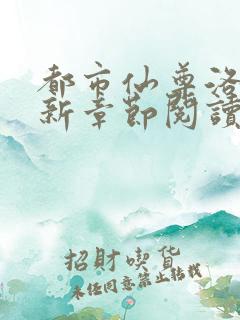 都市仙尊洛
新章節閱讀
招財喫貨
未经同意禁止转载